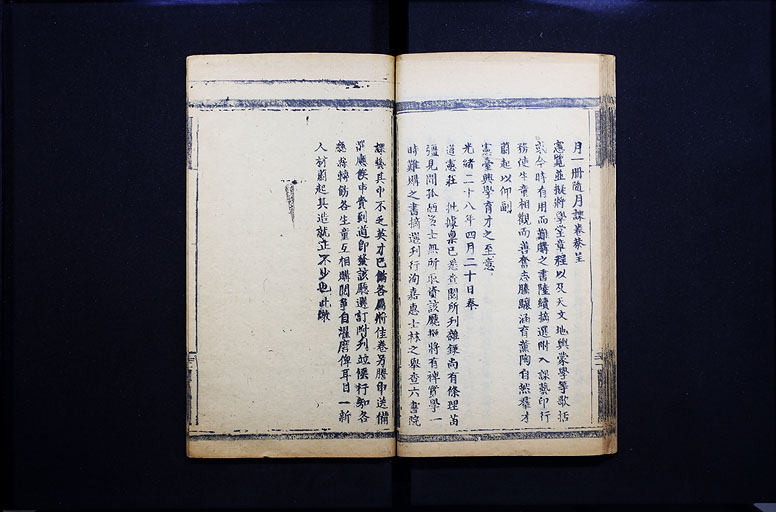 月一冊隨月課卷彙呈
憲覽並擬將學堂章程以及天文地輿蒙學等歌括
或今時有用而難購之書陸續摘選附入課藝印行
務使生童相觀而善奮志騰驤涵育薰陶自然羣才
蔚起以仰副
憲臺興學育才之至意
光緒二十八年四月二十日奉
道憲莊 批據稟已悉查閱所刊雜鈔尚有條理苗
疆見聞孤陋多士無所取資該廳擬將有裨實學一
時難購之書摘選刊行洵嘉惠士林之舉查六書院
課藝其中不乏英才已飭各屬將佳卷另謄申送備
該廳俟申賫到道即發該廳選訂附刊並候行知各
縣轉飭各生童互相購閱爭自濯磨俾耳目一新
人材蔚起其造就豈不少也此繳